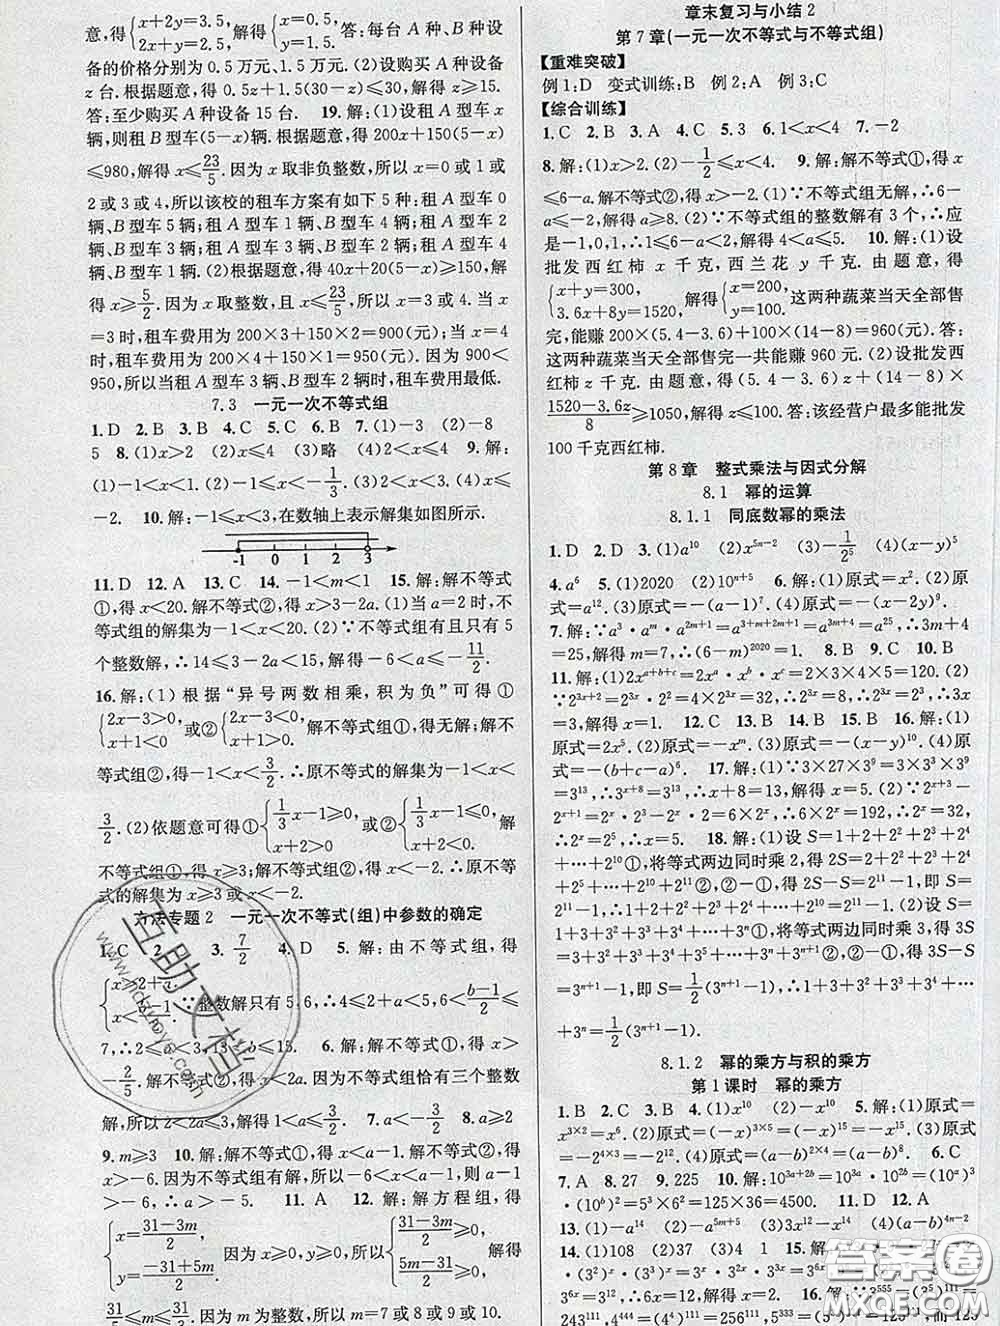 意,得{x+2y=3.5, 2x+y=2.5. 解得{x=0.5, y=1.5. 答:每台 A 种设备、B 种设
备的价格分别为 0.5 万元、1.5 万元. (2)设购买 A 种设备
z 台. 根据题意,得 0.5z+1.5(30-z)≤30,解得 z≥15.
答:至少购买 A 种设备 15 台. 19. 解:(1)设租 A 型车 x
辆,则租 B 型车(5-x)辆. 根据题意,得 200x+150(5-x)
≤980,解得 x≤23/5. 因为 x 取非负整数,所以 x=0 或 1 或
2 或 3 或 4,所以该校的租车方案有如下 5 种:租 A 型车 0
辆、B 型车 5 辆;租 A 型车 1 辆、B 型车 4 辆;租 A 型车 2
辆、B 型车 3 辆;租 A 型车 3 辆、B 型车 2 辆;租 A 型车 4
辆、B 型车 1 辆. (2)根据题意,得 40x+20(5-x)≥150,解
得 x≥5/2. 因为 x 取整数,且 x≤23/5,所以 x=3 或 4. 当 x
=3 时,租车费用为 200×3+150×2=900(元);当 x=4
时,租车费用为 200×4+150=950(元). 因为 900<
950,所以当租 A 型车 3 辆、B 型车 2 辆时,租车费用最低.
7.3 一元一次不等式组
1. D 2. B 3. B 4. C 5. C 6. B 7. (1)-3 (2)-8
5 8. (1)x>2 (2)x≤4 (3)略 (4)2<x≤4 9. 解:
(1)-1<x<2. (2)-1≤x<3. (3)-2<x≤1. (4)x≤
-2. 10. 解:-1≤x<3,在数轴上表示解集如图所示.
-1 0 1 2 3
11. D 12. A 13. C 14. -1<m<1 15. 解:解不等式
①,得 x<20. 解不等式②,得 x>3-2a. (1)当 a=2 时,不
等式组的解集为-1<x<20. (2)∵不等式组有且只有 5
个整数解,∴14≤3-2a<15,∴-6<a≤-11/2.
16. 解:(1)根据“异号两数相乘,积为负”可得①
{2x-3>0, x+1<0 或②{2x-3<0, x+1>0. 解不等式组①,得无解;解不
等式组②,得-1<x<3/2. ∴原不等式的解集为-1<x<
3/2. (2)依题意可得①{1/3x-1≥0, x+2>0 或②{1/3x-1≤0, x+2<0. 解
不等式组①,得 x≥3;解不等式组②,得 x<-2. ∴原不等
式的解集为 x≥3 或 x<-2.
方法专题 2 一元一次不等式(组)中参数的确定
1. C 2. 3. 7/2 4. D 5. 解:由不等式组,得
∵整数解只有 5,6,∴4≤2+a<5,6<(b-1)/2≤
7,∴2≤a<3,13<b≤15. 6. 解:解不等式①,得 x>
-2/5. 解不等式②,得 x<2a. ∵不等式组恰有三个整数
解,所以 2<2a≤3,解得 1<a≤3/2. 7. a<2 8. a≥2
9. m≥3 10. 解:解不等式①,得 x<a-1. 解不等式②,得 x
>-6. 因为不等式组有解,所以-6<x<a-1,则 a-1
>-6,∴a>-5. 11. A 12. 解:解方程组,得
{x=(31-3m)/2, y=(-31+5m)/2. 因为 x≥0,y≥0,所以{(31-3m)/2≥0, (5m-31)/2≥0. 解得
31/5≤m≤31/3. 因为 m 为整数,所以 m=7 或 8 或 9 或 10.
章末复习与小结 2
第 7 章(一元一次不等式与不等式组)
【重难突破】
例 1:D 变式训练:B 例 2:A 例 3:C
【综合训练】
1. C 2. B 3. A 4. C 5. 3 6. 1<x<4 7. -2
8. 解:(1)x>2. (2)-1/2≤x<4. 9. 解:解不等式①,得 x
≤6-a. 解不等式②,得 x>-2. (1)∵不等式组无解,∴6
-a≤-2,解得 a≥8. (2)∵不等式组的整数解有 3 个,∴应
是-1,0,1,∴1≤6-a<2,解得 4<a≤5. 10. 解:(1)设
批发西红柿 x 千克,西兰花 y 千克. 由题意,得
{x+y=300, 3.6x+8y=1520, 解得{x=200, y=100. 这两种蔬菜当天全部售
完,能赚 200×(5.4-3.6)+100×(14-8)=960(元). 答:
这两种蔬菜当天全部售完一共能赚 960 元. (2)设批发西
红柿 z 千克. 由题意,得(5.4-3.6)z+(14-8)×
(1520-3.6z)/8≥1050,解得 z≤100. 答:该经营户最多能批发
100 千克西红柿.
第 8 章 整式乘法与因式分解
8.1 幂的运算
8.1.1 同底数幂的乘法
1. D 2. D 3. (1)a¹⁰ (2)x⁵ᵐ⁻² (3)-1/2⁵ (4)(x-y)⁵
4. a⁶ 5. (1)2020 (2)10ⁿ⁺⁵ 6. 解:(1)原式=x². (2)原
式=a¹². (3)原式=-(a-1)⁷. (4)原式=-(x-2y)⁹.
7. 解:∵a³·aᵐ·a²ᵐ⁺¹=a³⁺ᵐ⁺²ᵐ⁺¹=a³ᵐ⁺⁴=a²⁵,∴3m+4
=25,解得 m=7,∴(6-m)²⁰²⁰=1. 8. B 9. C 10. B
11. 解:(1)2xᵃ⁺ᵇ⁺ᶜ=2xᵃ·xᵇ·xᶜ=2×4×5×6=240. (2)
∵2³ˣ⁺²=2³ˣ·2²=4×2³ˣ=32,∴2³ˣ=8,∴2³ˣ=2³,∴3x
=3,解得 x=1. 12. C 13. B 14. B 15. B 16. 解:(1)
原式=2x⁵. (2)原式=-xᵐ. (3)原式=-(x-y)¹⁰. (4)原
式=-(b+c-a)⁶. 17. 解:(1)∵3×27×9=3×3³×3²
=3¹³,∴3ˣ⁺⁸=3¹³,∴x+8=13,解得 x=5. (2)∵2ˣ⁺³-
2ˣ⁺¹=2ˣ·2³-2ˣ·2=6×2ˣ,∴6×2ˣ=192,∴2ˣ=32,
∴2ˣ=2⁵,∴x=5. 18. 解:(1)设 S=1+2+2²+2³+2⁴
+…+2¹⁰①,将等式两边同时乘 2,得 2S=2+2²+2³+2⁴
+…+2¹⁰+2¹¹②. ②-①,得 2S-S=2¹¹-1,即 S=2¹¹-1,即
1+2+2²+2³+2⁴+…+2¹⁰=2¹¹-1. (2)设 S=1+3
+3²+3³+3⁴+…+3ⁿ①,将等式两边同时乘 3,得 3S=3
+3²+3³+3⁴+…+3ⁿ+3ⁿ⁺¹②. ②-①,得 3S-S=
3ⁿ⁺¹-1,即 S=1/2(3ⁿ⁺¹-1),即 1+3+3²+3³+3⁴+…
+3ⁿ=1/2(3ⁿ⁺¹-1).
8.1.2 幂的乘方与积的乘方
第 1 课时 幂的乘方
1. B 2. B 3. B 4. (1)x¹⁰ (2)-x¹⁰ 5. 解:(1)原式=
x³ˣ²=x⁶. (2)原式=(-x)³ˣ⁵=(-x)¹⁵=-x¹⁵. (3)原式
=-2⁴ˣ³=-2¹². (4)原式=(a-b)²ˣ⁴=(a-b)⁸. 6. C
7. A 8. 27 9. 225 10. 解:10³ᵃ⁺²ᵇ=10³ᵃ·10²ᵇ=(10ᵃ)³
·(10ᵇ)²=5³×6²=125×36=4500. 11. D 12. A
13. (1)-a¹⁴ (2)a⁵ᵐ⁺⁵ (3)x¹²+x¹⁴ (4)(a-b)⁴ⁿ⁻²
14. (1)108 (2)37 (3)4 1 15. 解
答案圈
MXQE.COM
互助文档